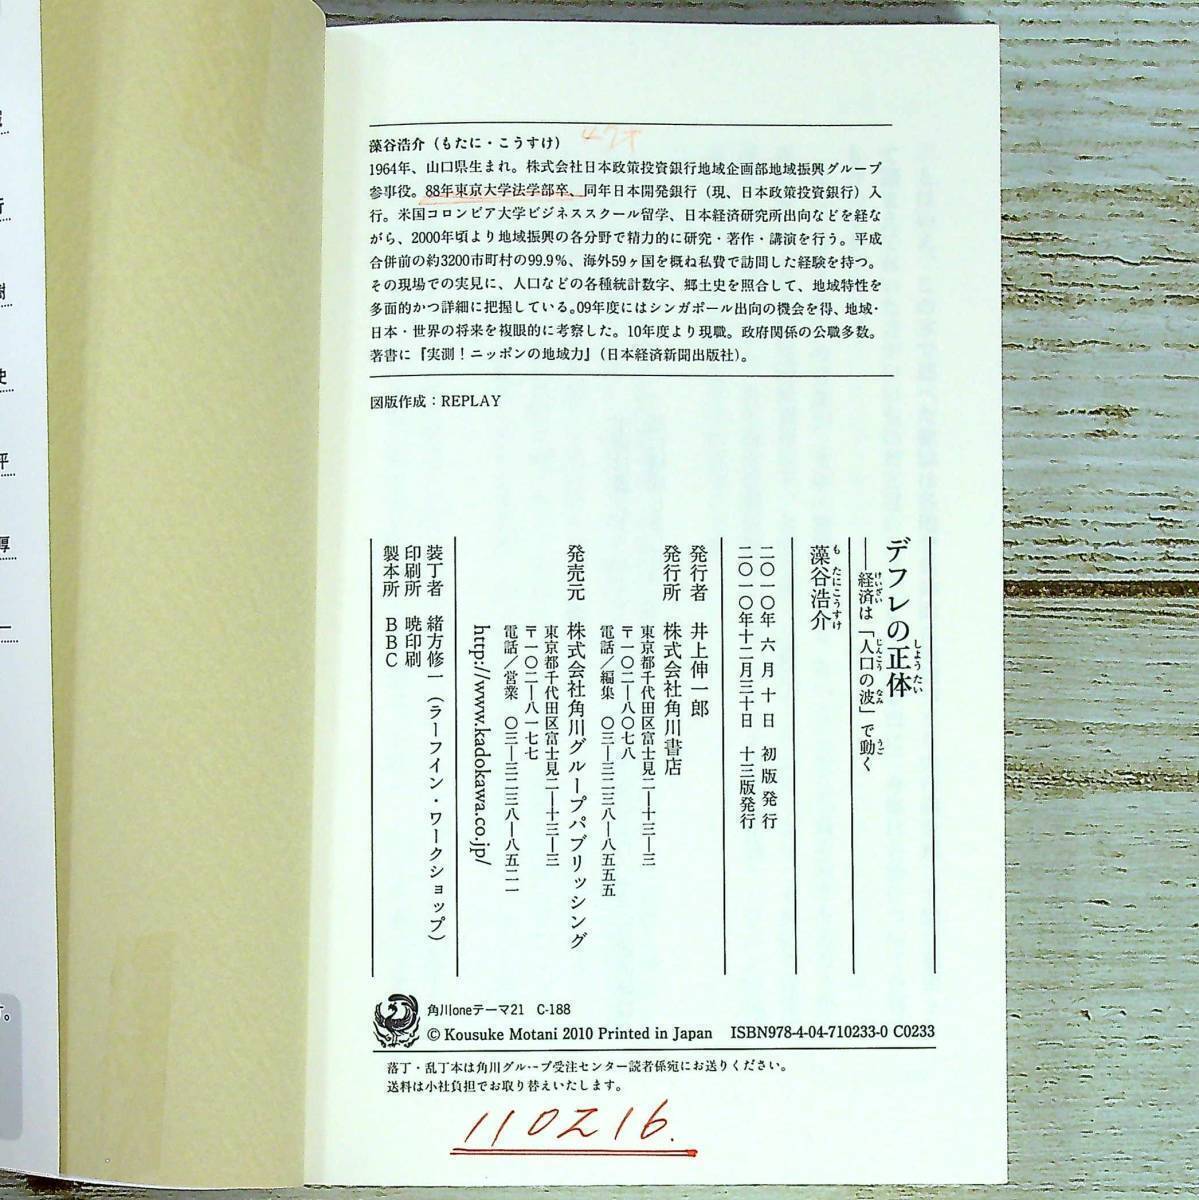 藻谷浩介（もたに・こうすけ）
1964年、山口県生まれ。株式会社日本政策投資銀行地域企画部地域振興グループ
参事役。88年東京大学法学部卒、同年日本開発銀行（現、日本政策投資銀行）入
行。米国コロンビア大学ビジネススクール留学、日本経済研究所出向などを経な
がら、2000年頃より地域振興の各分野で精力的に研究・著作・講演を行う。平成
合併前の約3200市町村の99.9%、海外59ヶ国を概ね私費で訪問した経験を持つ。
その現場での実見に、人口などの各種統計数字、郷土史を照合して、地域特性を
多面的かつ詳細に把握している。09年度にはシンガポール出向の機会を得、地域・
日本・世界の将来を複眼的に考察した。10年度より現職。政府関係の公職多数。
著書に『実測！ニッポンの地域力』（日本経済新聞出版社）。
図版作成：REPLAY
デフレの正体
しょうたい
──経済は「人口の波」で動く
けいざい じんこう なみ うご
藻谷浩介
も たにこうすけ
二〇一〇年 六月 十日 初版発行
二〇一〇年十二月三十日 十三版発行
発行者 井上伸一郎
発行所 株式会社角川書店
東京都千代田区富士見二―十三―三
〒一〇二―八〇七八
電話／編集 〇三―三二三八―八五五五
発売元 株式会社角川グループパブリッシング
東京都千代田区富士見二―十三―三
〒一〇二―八一七七
電話／営業 〇三―三二三八―八五二一
http://www.kadokawa.co.jp/
装丁者 緒方修一（ラーフイン・ワークショップ）
印刷所 暁印刷
製本所 BBC
角川oneテーマ21 C-188
© Kousuke Motani 2010 Printed in Japan ISBN978-4-04-710233-0 C0233
落丁・乱丁本は角川グループ受注センター読者係宛にお送りください。
送料は小社負担でお取り替えいたします。
110216.